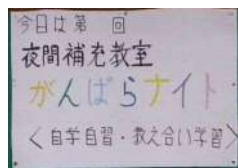 今日は第 回
夜間補充教室
がんばらナイト
＜自学自習・教え合い学習＞